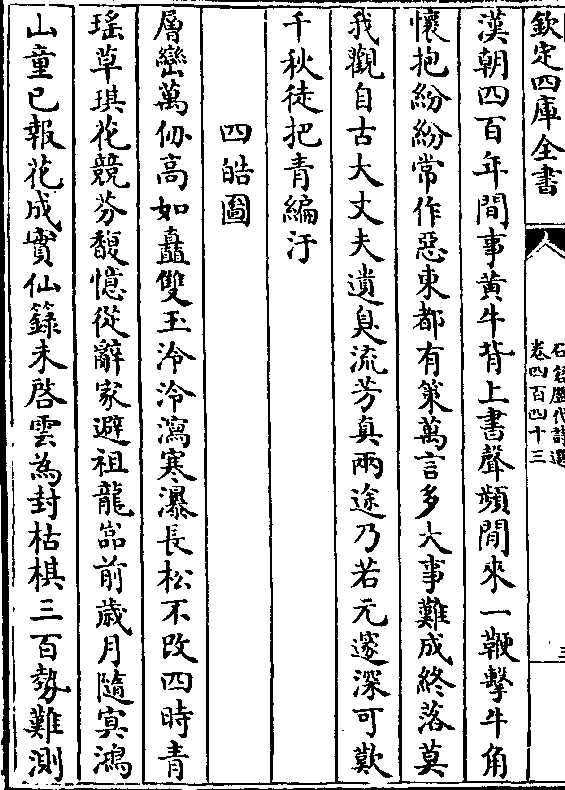 欽定四庫全書
石倉歷代詩選
卷四百四十三
三
漢朝四百年間事黃牛背上書聲頻閒來一鞭擊牛角
懷抱紛紛常作惡東都有策萬言多大事難成終落莫
我觀自古大丈夫遺臭流芳真兩途乃若元邃深可歎
千秋徒把青編汙
四皓圖
層巒萬仞高如矗雙玉泠泠瀉寒瀑長松不改四時青
瑶草琪花競芬馥憶從辭家避祖龍嵓前歲月隨㝠鴻
山童已報花成實仙籙未啓雲為封枯棋三百勢難測